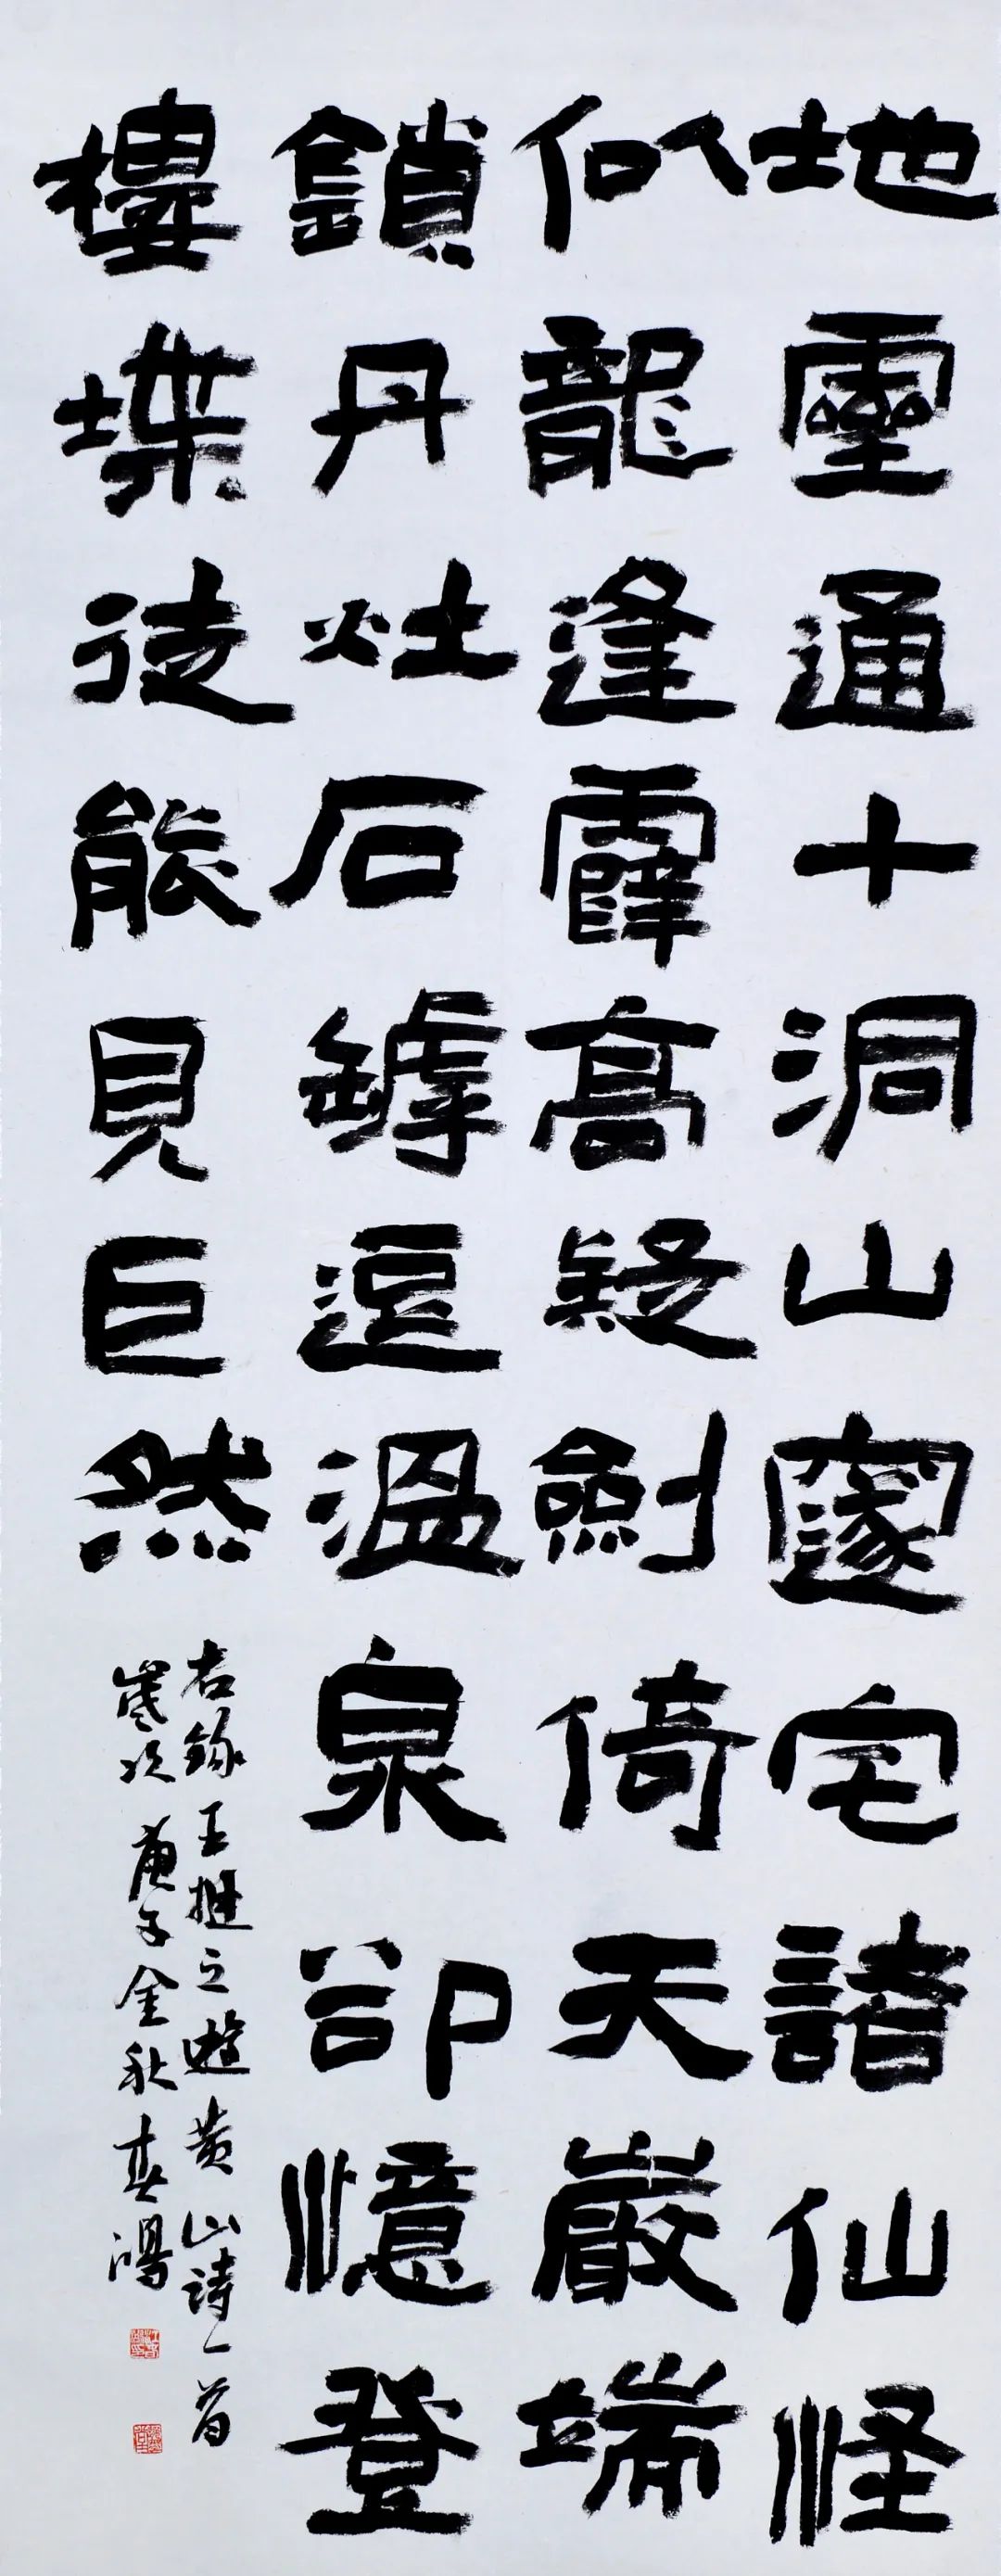 地靈通十洞山邃宅諸仙怪
似龍逢霹高疑劍倚天巖端
鎖丹灶石罅逗溫泉卻憶登
樓堞徒能見巨然
右錄王之遊黃山詩一首
歲次庚子金秋春鴻